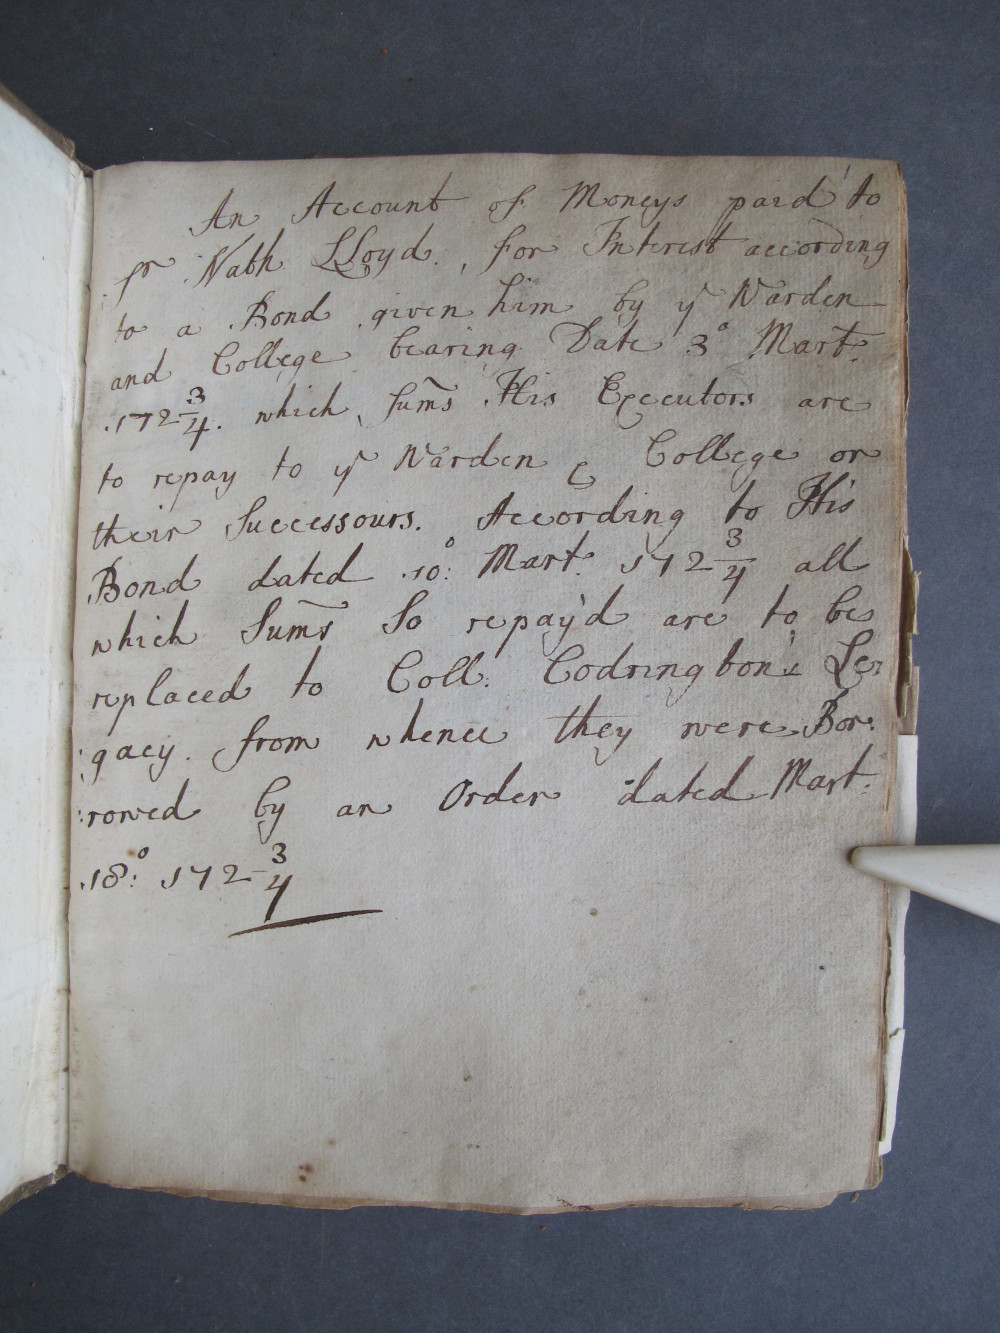 An Account of Moneys paid to
Sr Nath LLoyd. for Interest according
to a Bond given him by ye Warden
and College bearing Date 3o Mart:
172 3/4. which sum̃s His Executors are
to repay to ye Warden & College or
their Successours. According to His
Bond dated 10:o Mart: 172 3/4 all
which Sum̃s So repay'd are to be
replaced to Coll: Codrington's Le:
:gacy. from whence they were Bor:
:rowed by an Order dated Mart:
18:o 172 3/4